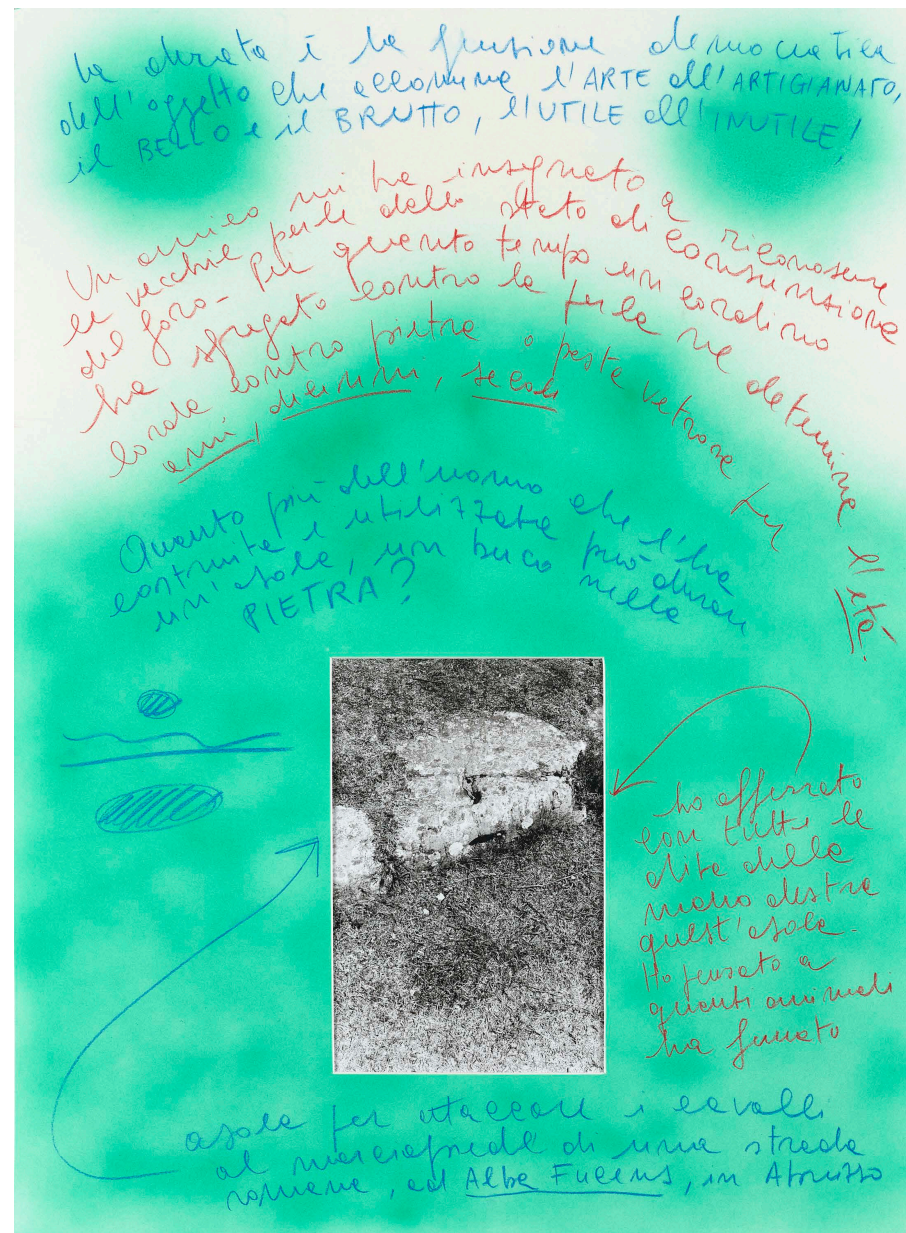 la durata è la funzione democratica
dell'oggetto che accomuna l'ARTE all'ARTIGIANATO,
il BELLO e il BRUTTO, l'UTILE all'INUTILE!
Un amico mi ha insegnato a riconoscere
le vecchie perle dallo stato di consunzione
del foro - Per quanto tempo un cordino
ha sfregato contro la perla ne determina l'età.
corda contro pietra o pasta vetrosa per
anni, decenni, secoli
Quanto più dell'uomo che l'ha
costruita e utilizzata può durare
un'asola, un buco nella
PIETRA?
ho afferrato
con tutte le
dita della
mano destra
quest'asola.
Ho pensato a
quanti animali
ha fermato
asola per attaccare i cavalli
al marciapiede di una strada
romana, ad Alba Fucens, in Abruzzo